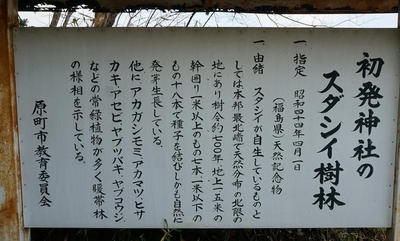 初発神社の
スダシイ樹林
一、指定 昭和四十四年四月一日
(福島県)天然記念物
一、由緒 スタシイが自生しているものと
しては本邦最北端で天然分布の北限の
地にあり樹令約七〇〇年地上一五米の
幹囲り一米以上のもの七本一米以下の
もの十八本で種子を結びしかも自然に
発芽生長している。
他にアカガシモミアカマツヒサ
カキアセビヤブツバキヤブコウジ
などの常緑植物が多く暖帯林
の様相を示している。
原町市教育委員会